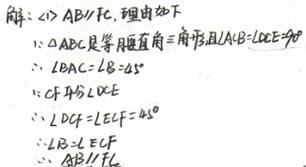 解：<1> AB∥FC，理由如下
∵△ABC是等腰直角三角形且∠ACB=∠DCE=90°
∴∠BAC=∠B=45°
∵CF平分∠DCE
∴∠DCF=∠ECF=45°
∴∠B=∠ECF
∴AB∥FC